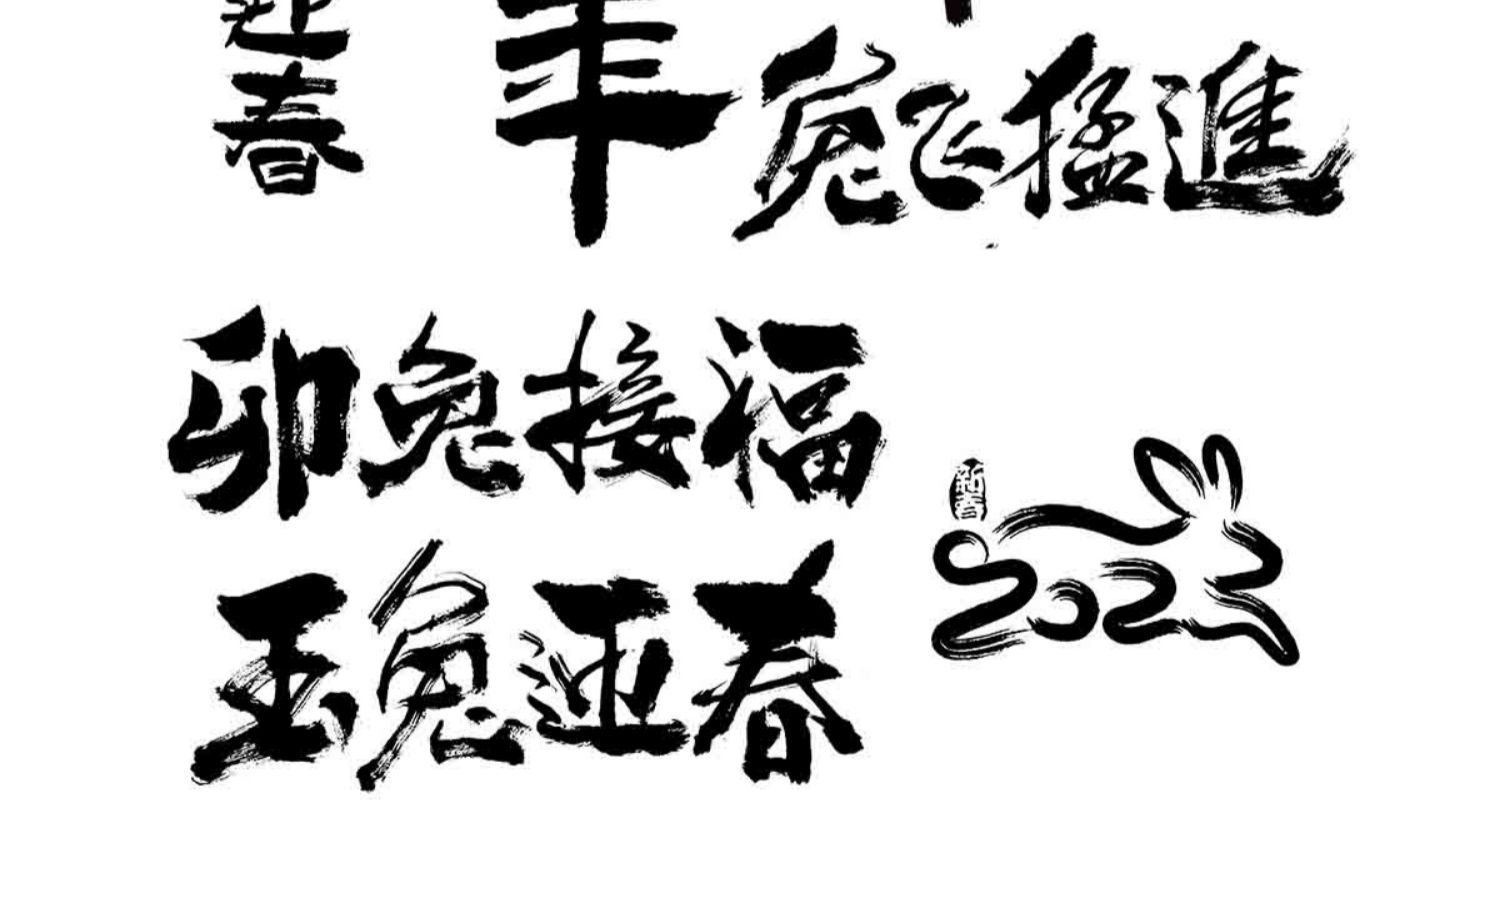 迎
春
年
兔飞猛進
卯兔接福
新春
2023
玉兔迎春